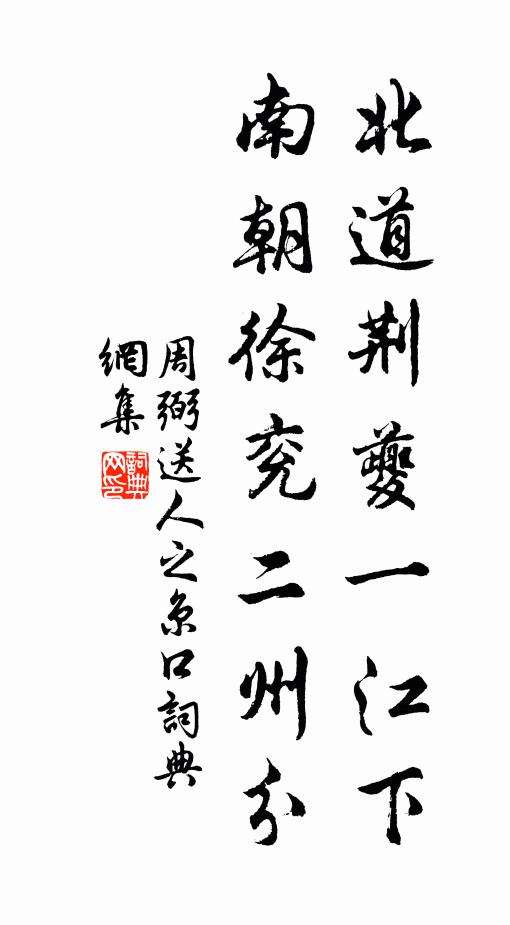 北道荆夔一江下
南朝徐兖二州分
周弼送人之京口詞典
網集
詞典網印